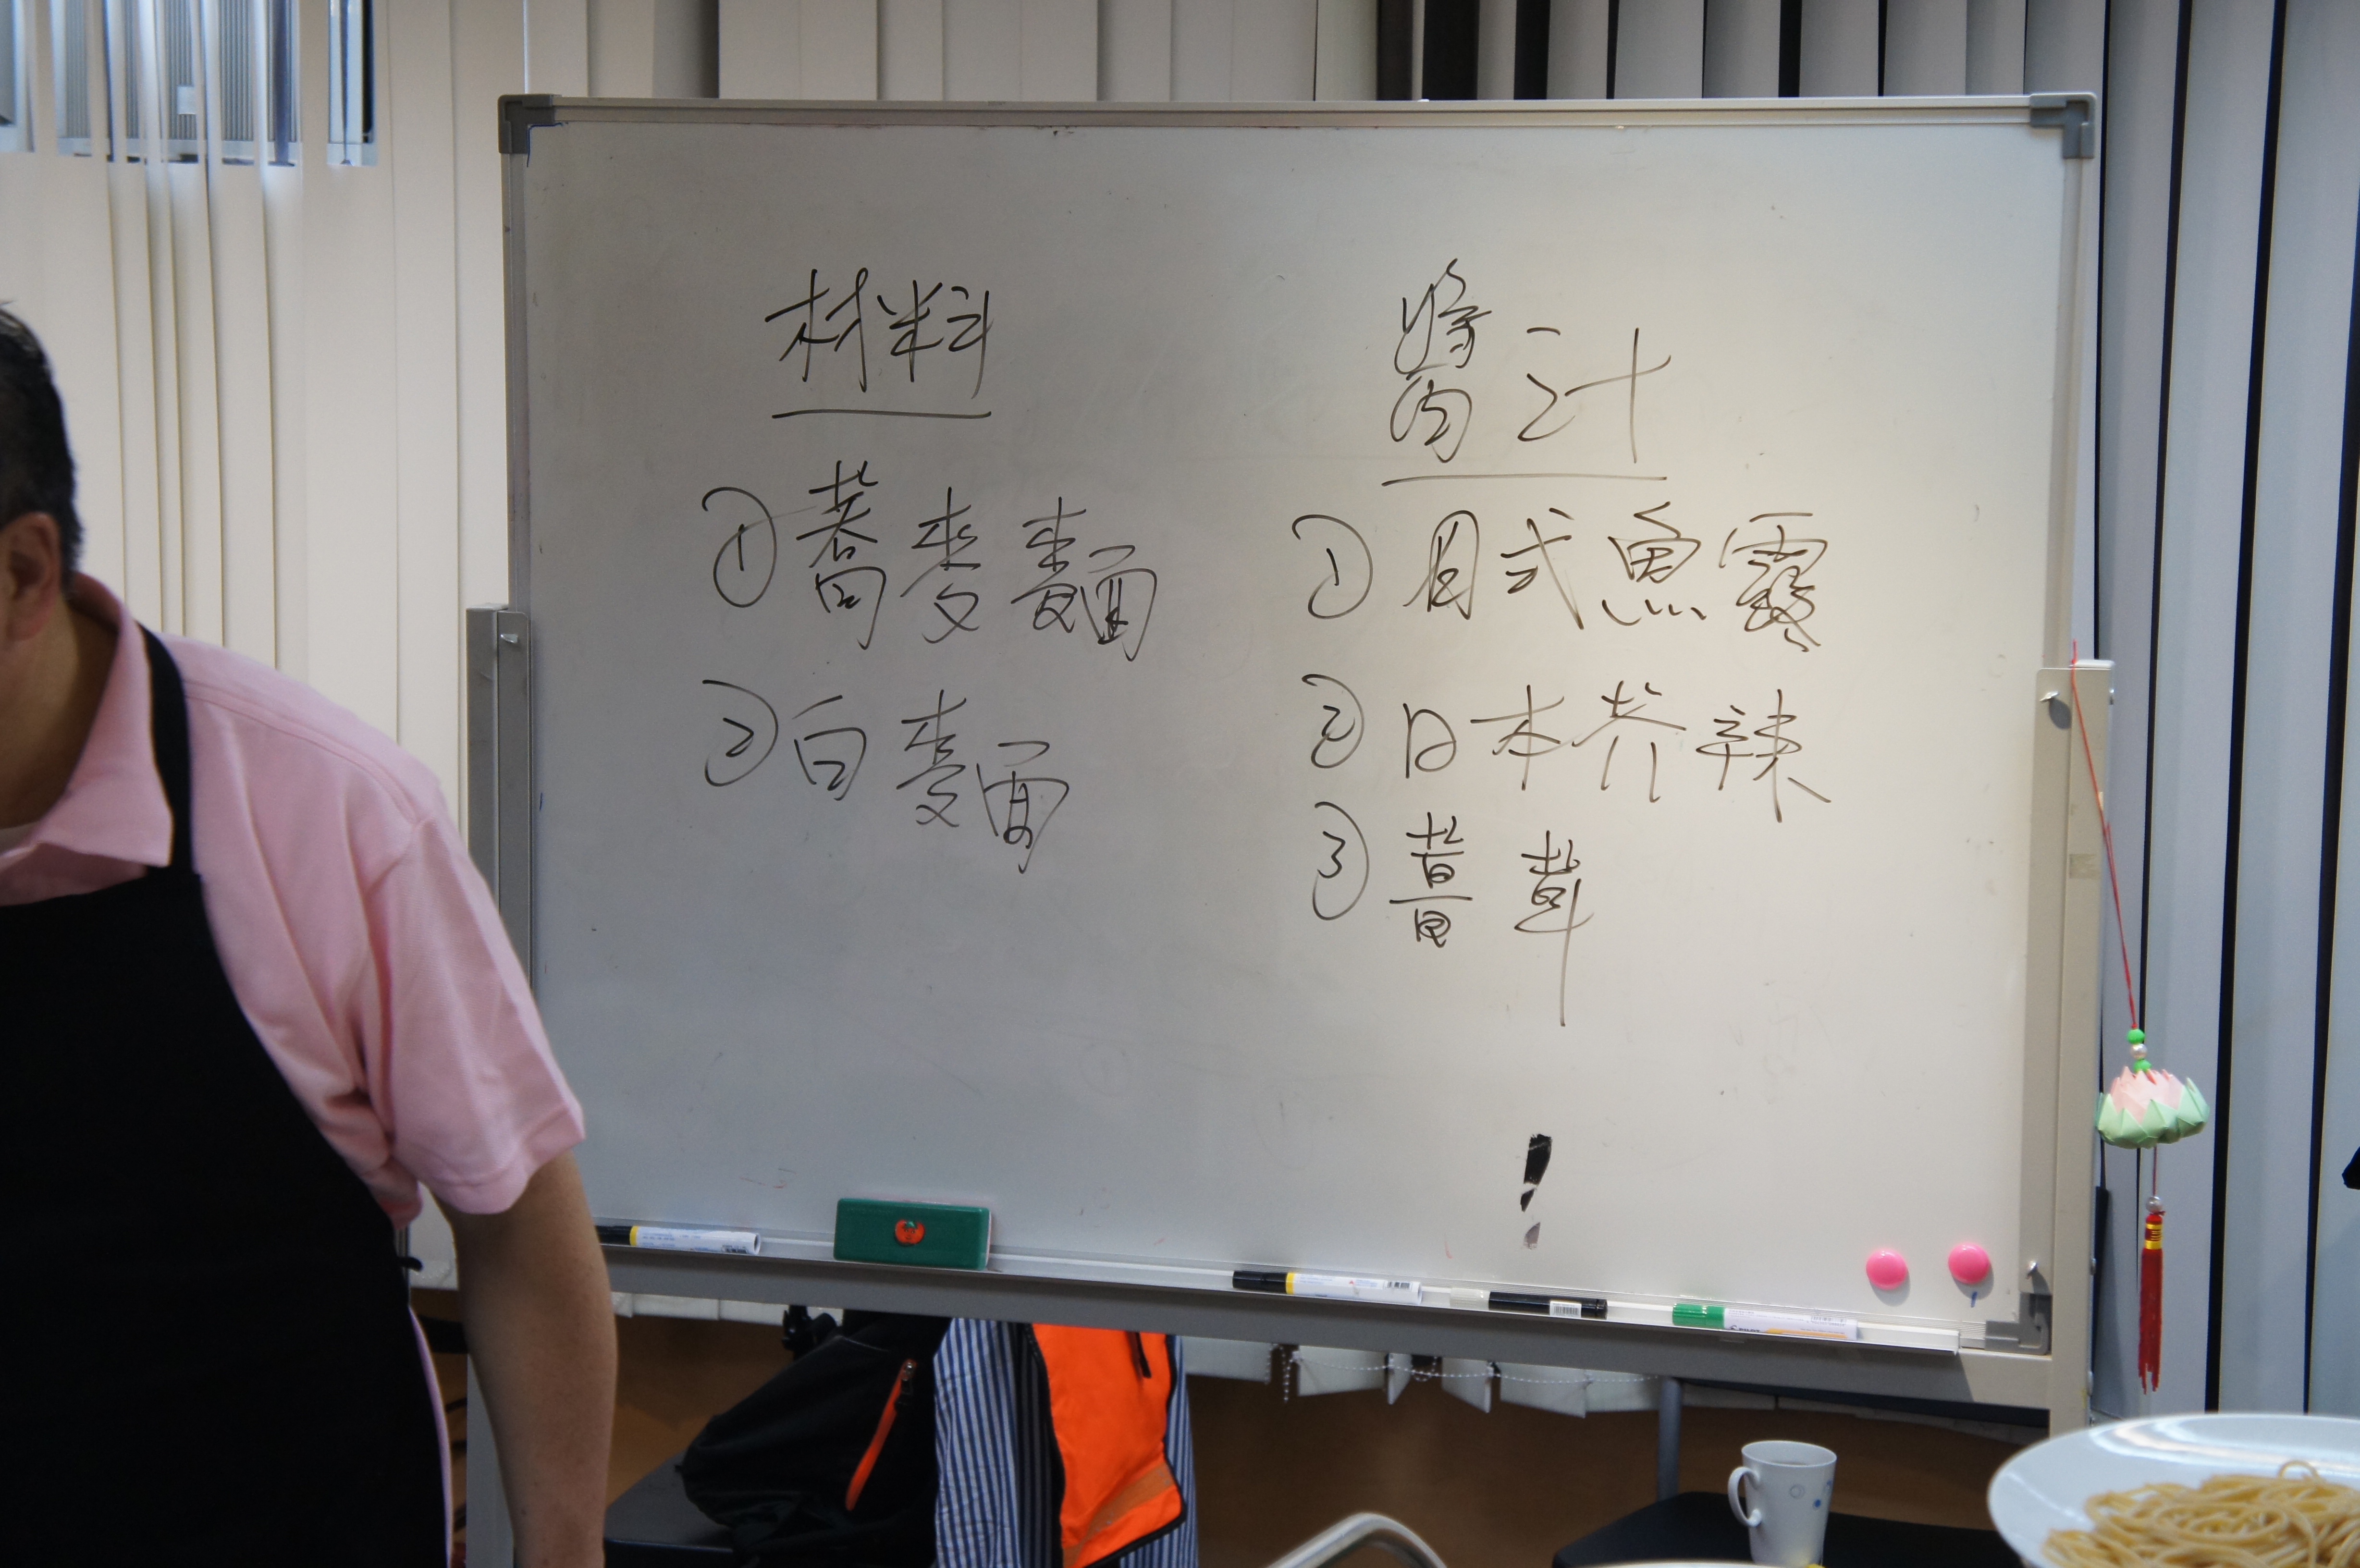 材料
①蕎麥麵
②白麵
醬汁
①日式魚露
②日本芥辣
③薑茸
!